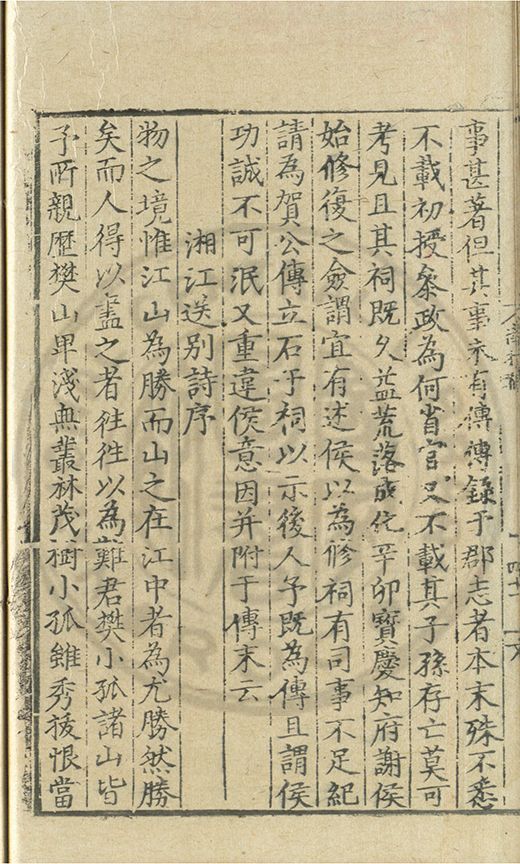 事甚著但其事未有傳傳錄于郡志者本末殊不悉
不載初授叅政為何省官又不載其子孫存亡莫可
考見且其祠既久益荒落成化辛卯寶慶知府謝侯
始修復之僉謂宜有述侯以為修祠有司事不足紀
請為賀公傳立石于祠以示後人予既為傳且謂侯
功誠不可泯又重違侯意因并附于傳末云
湘江送別詩序
物之境惟江山為勝而山之在江中者為尤勝然勝
矣而人得以盡之者徃徃以為難君樊小孤諸山皆
予所親歷樊山卑淺無叢林茂樹小孤雖秀拔恨當